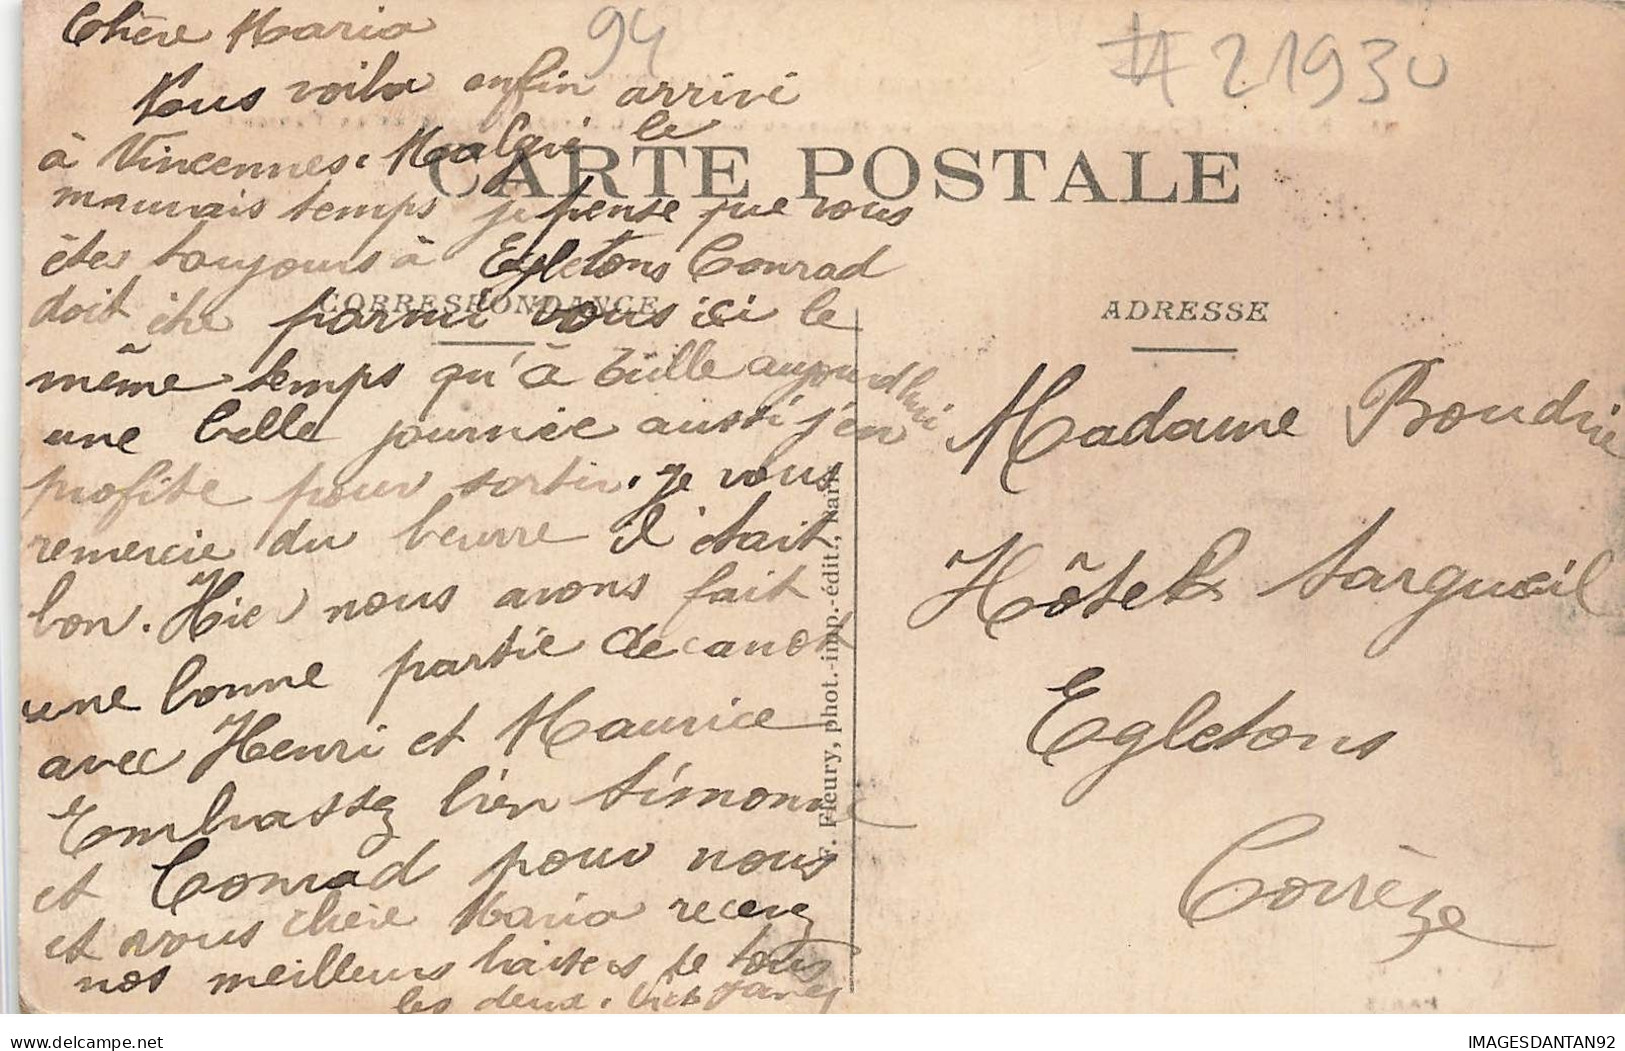 94
# 21930
Chère Maria
Nous voila enfin arrivé
à Vincennes. Malgré le
mauvais temps je pense que vous
êtes toujours à Egletons Conrad
doit être parmi vous ici le
même temps qu'à Tulle aujourd'hui
une belle journée aussi j'en
profite pour sortir. je vous
remercie du beurre il était
bon. Hier nous avons fait
une bonne partie de canot
avec Henri et Maurice
Embrassez bien Simonne
et Conrad pour nous
et vous chère Maria recevez
nos meilleurs baisers de tous
les deux.
CARTE POSTALE
CORRESPONDANCE
ADRESSE
F. Fleury, phot.-imp.-édit., Paris
Madame Boudrie
Hôtel Targueil
Egletons
Corrèze
IMAGESDANTAN92
delcampe.net